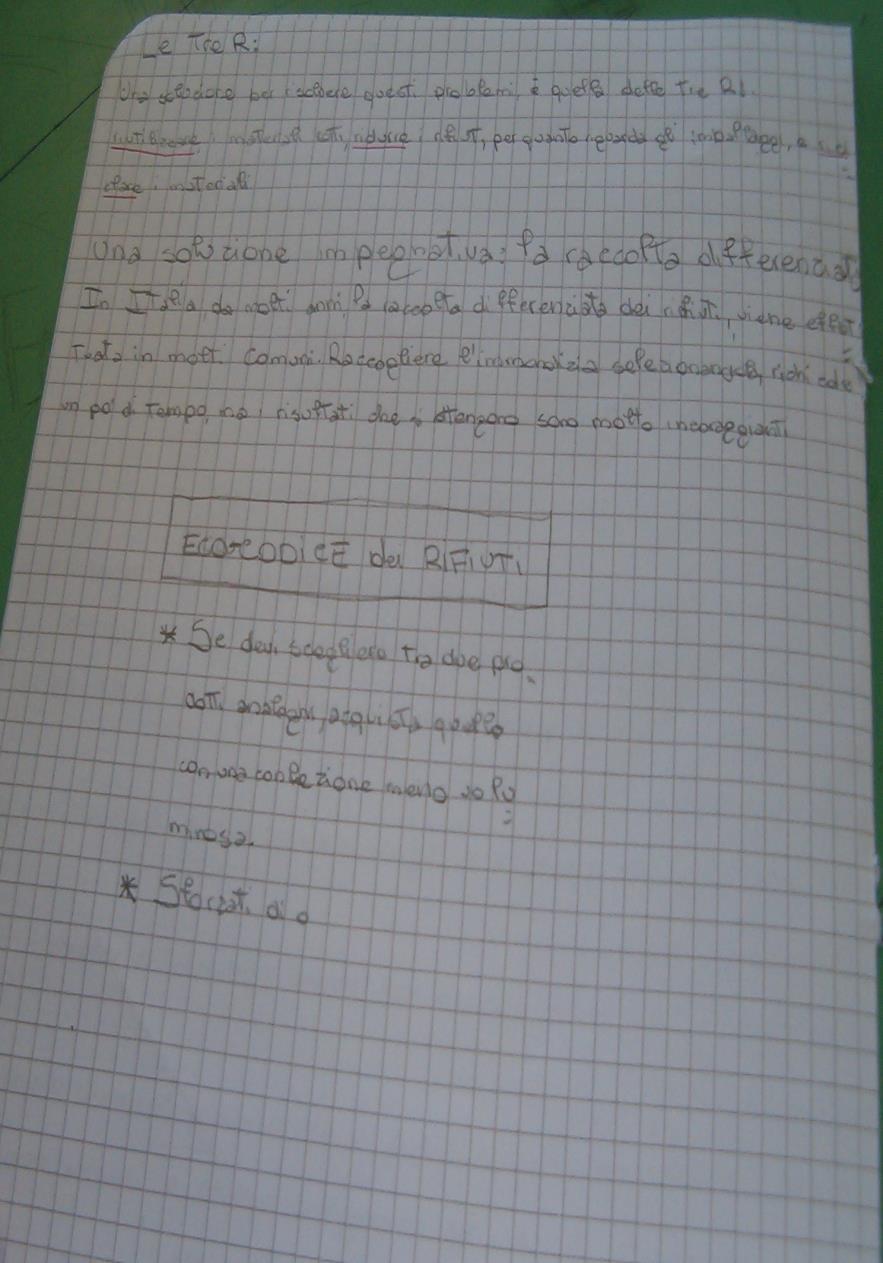 Le Tre R:
Una soluzione per risolvere questi problemi, è quella delle Tre R!.
riutilizzare i materiali, ridurre i rifiuti, per quanto riguarda gli imballaggi, e rici
clare i materiali
Una soluzione impegnativa: la raccolta differenziata
In Italia da molti anni, la raccolta differenziata dei rifiuti, viene effet
tuata in molti Comuni. Raccogliere l'immondizia selezionandola, richiede
un po' di Tempo, ma i risultati che si ottengono sono molto incoraggianti
ECO-CODICE dei RIFIUTI
* Se devi scegliere tra due pro
dotti analoghi, acquista quello
con una confezione meno volu
minosa.
* Sforzati di